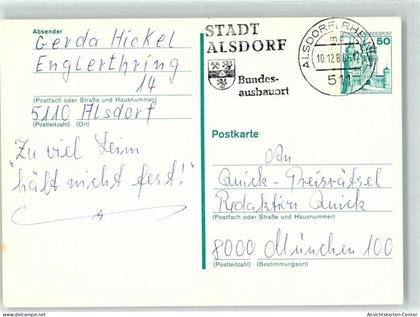 Absender
Gerda Hickel
Englerthring
14
(Postfach oder Straße und Hausnummer)
5110 Alsdorf
(Postleitzahl) (Ort)
"Zu viel Leim
hält nicht fest!"
STADT
ALSDORF
Bundes-
ausbauort
ALSDORF, RHEINL
10.12.8
511
50
Postkarte
An
Quick-Preisrätsel
Redaktion Quick
(Postfach oder Straße und Hausnummer)
8000 München 100
(Postleitzahl) (Bestimmungsort)
Ansichtskarten-Center